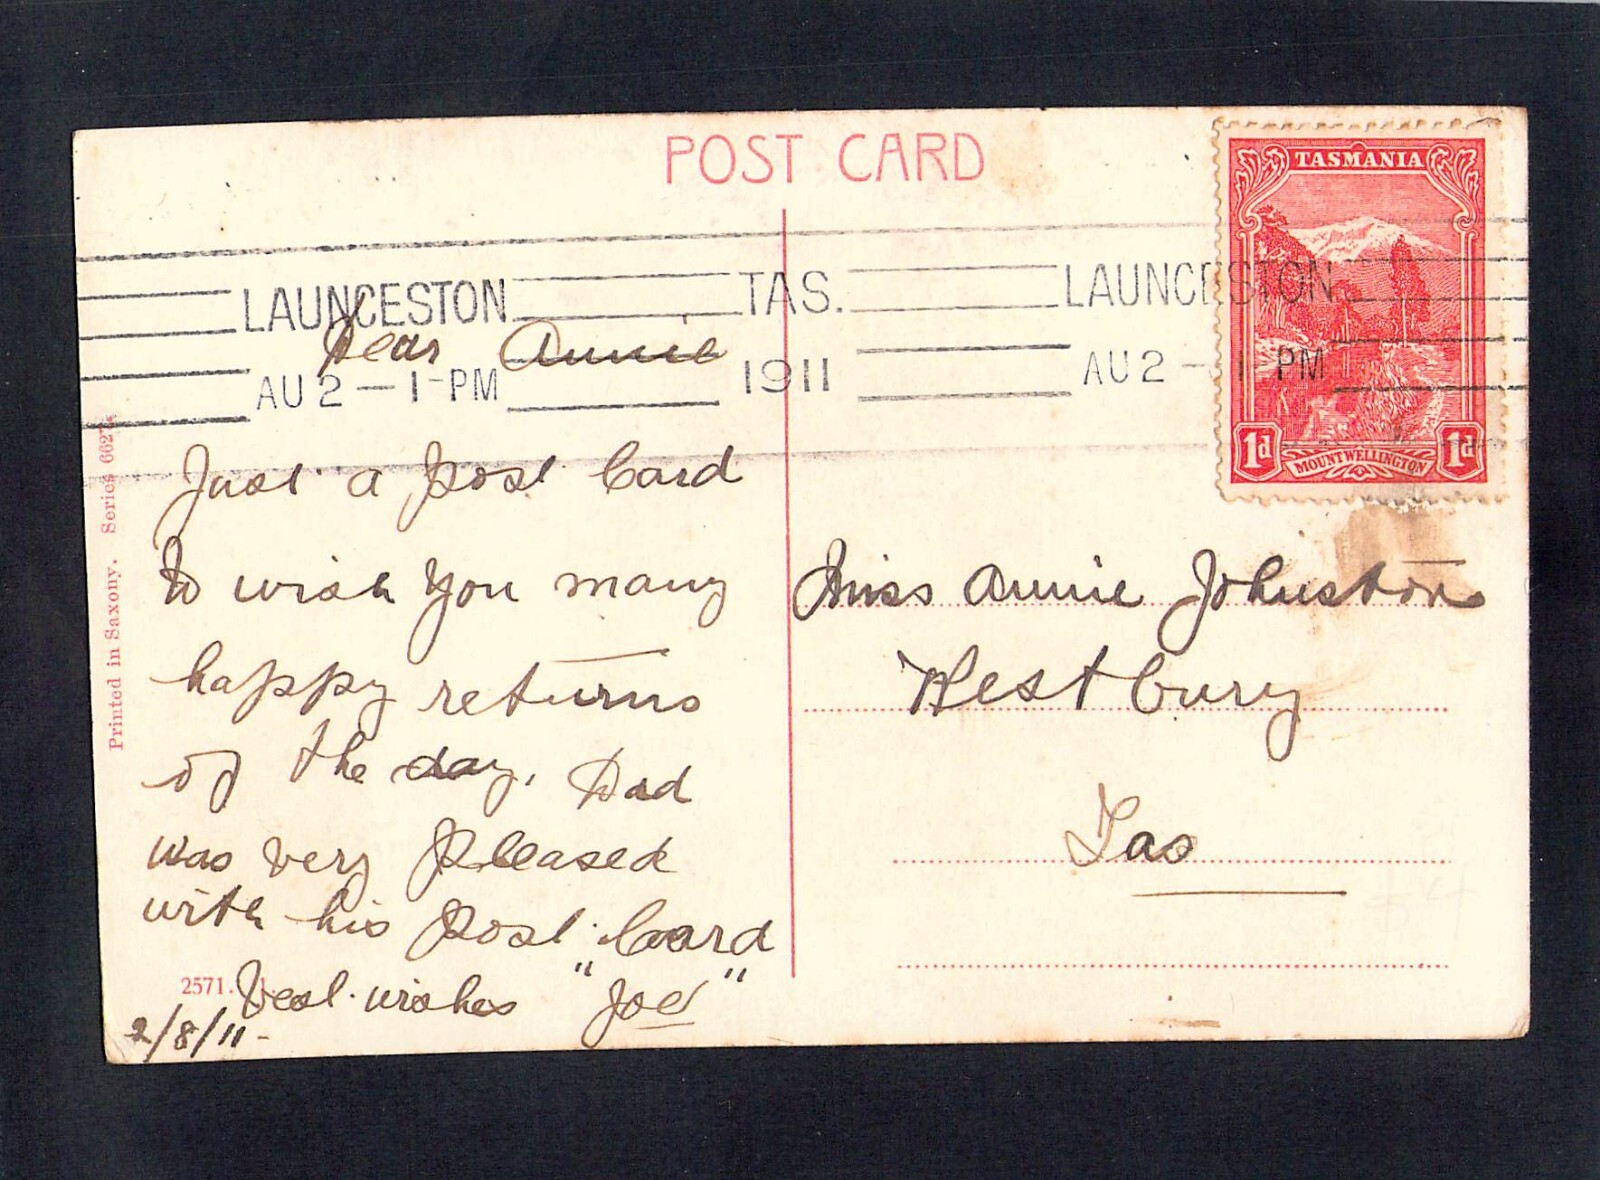 POST CARD
TASMANIA
LAUNCESTON TAS. LAUNCESTON
AU 2 — 1 - PM 1911 AU 2 — 1 PM
1d MOUNT WELLINGTON 1d
Dear Annie
Just a Post Card
to wish you many
happy returns
of the day, Dad
was very Pleased
with his Post Card
Best wishes "Joe"
2/8/11-
Miss Annie Johnston
Westbury
Tas
Printed in Saxony. Series
2571.